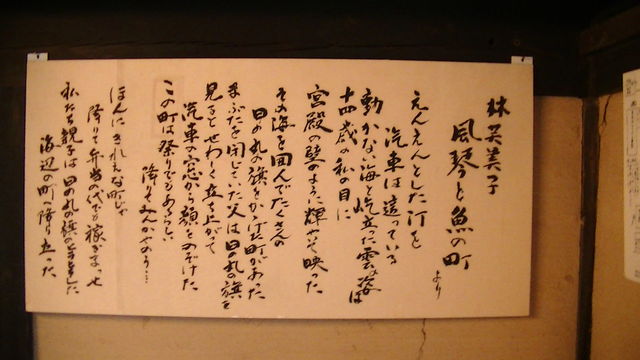 林芙美子
風琴と魚の町
より
えんえんとした汀を
汽車は這っている
動かない海と屹立った雲の姿は
十四歳の私の目に
宮殿の壁のように輝やいて映った
その海を囲んでたくさんの
日の丸の旗をかゝげた町があった
まぶたを閉じていた父は日の丸の旗を
見るとせわしく立ち上がって
汽車の窓から顔をのぞけた
この町は祭りでもあるらしい
降りてみんかやのう…
ほんにきれえな町じゃ
降りて弁当の代でも稼ぎまっせ
私たち親子は日の丸の旗の
海辺の町へ降り立った